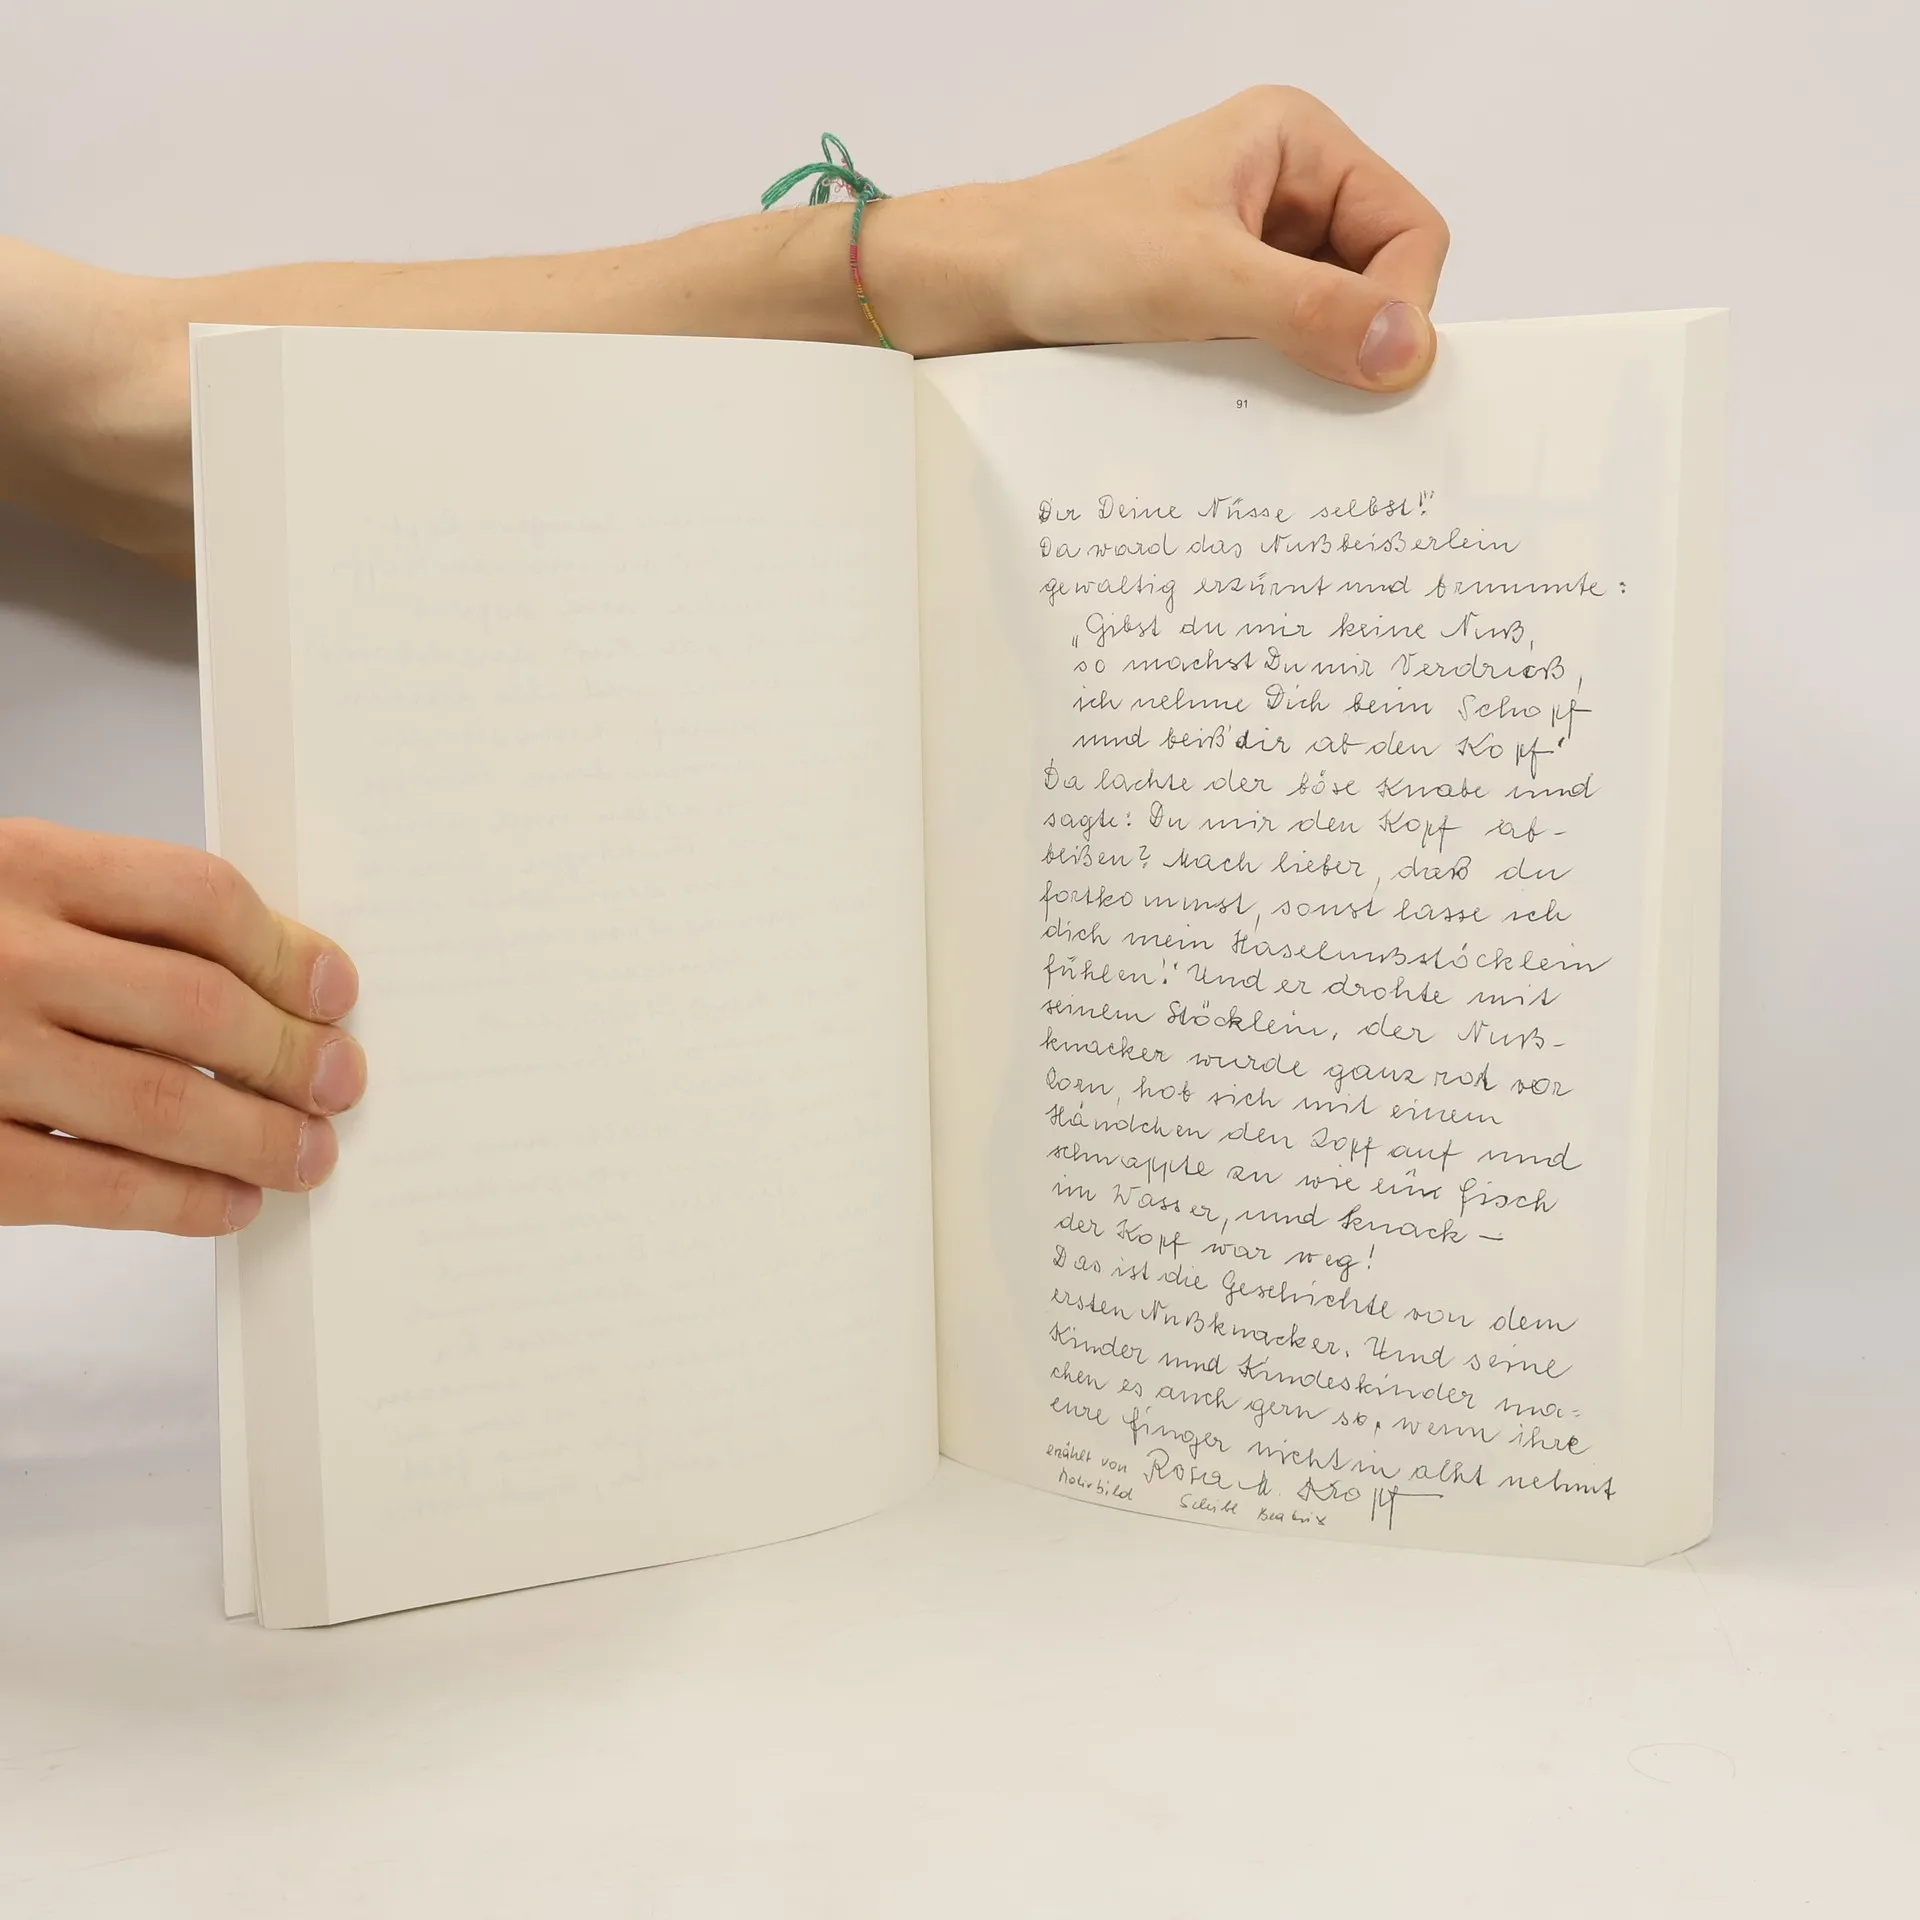 91
Dir Deine Nüsse selbst!"
Da ward das Nußbeißerlein
gewaltig erzürnt und brummte:
„Gibst du mir keine Nuß,
so machst Du mir Verdruß,
ich nehme Dich beim Schopf
und beiß' dir ab den Kopf"
Da lachte der böse Knabe und
sagte: Du mir den Kopf ab-
beißen? Mach lieber, daß du
fortkommst, sonst lasse ich
dich mein Haselnußstöcklein
fühlen!" Und er drohte mit
seinem Stöcklein, der Nuß-
knacker wurde ganz rot vor
Zorn, hob sich mit einem
Händchen den Zopf auf und
schnappte zu wie ein fisch
im Wasser, und knack –
der Kopf war weg!
Das ist die Geschichte von dem
ersten Nußknacker. Und seine
Kinder und Kindeskinder ma-
chen es auch gern so, wenn ihre
eure finger nicht in acht nehmt
erzählt von Rosa M. Kropf
Beatrix